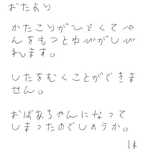 おたより
かたこりがひどくてぺ
んをもつとゆびがしび
れます。
したをむくことができま
せん。
おばあちゃんになって
しまったのでしょうか。